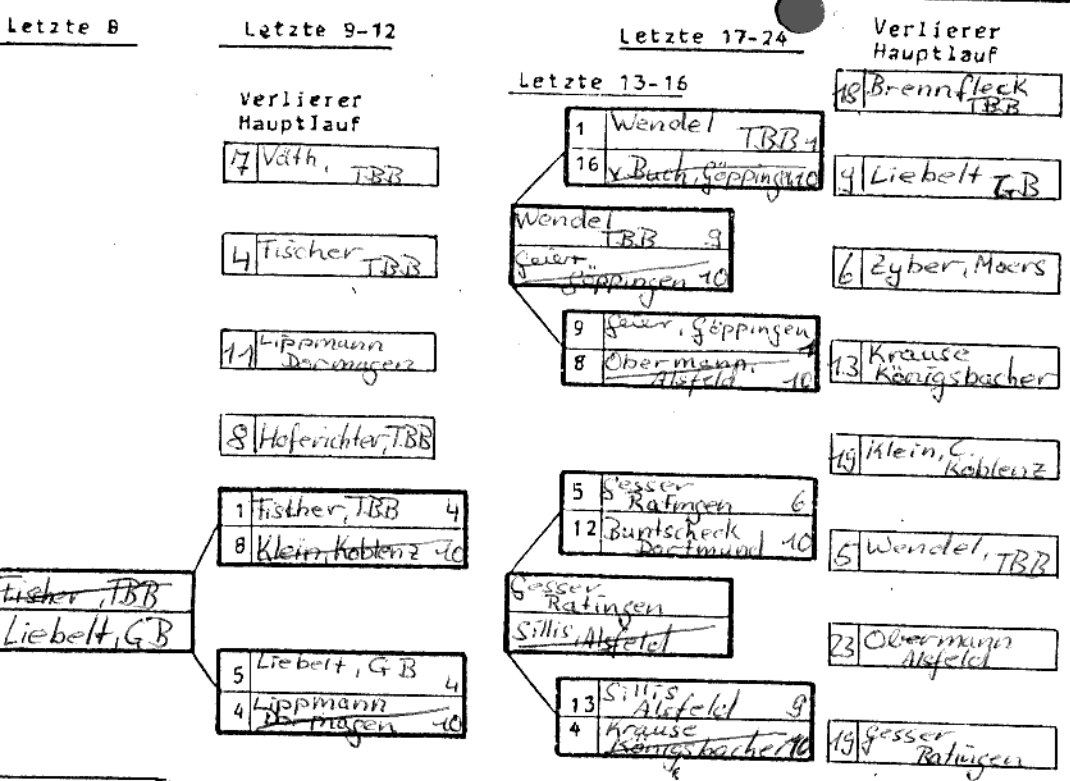 Letzte 8
Letzte 9-12
Letzte 17-24
Verlierer
Hauptlauf
Letzte 13-16
Verlierer
Hauptlauf
7 Väth,
TBB
4 Fischer
TBB
11 Lippmann
Dormagen
8 Hoferichter, TBB
1 Fischer, TBB 4
8 Klein, Koblenz 10
Fischer, TBB
Liebelt, GB
5 Liebelt, GB 4
4 Lippmann
Dormagen 10
1 Wendel
TBB 1
16 v Buch, Göppingen 10
Wendel
TBB 9
Geier
Göppingen 10
9 Geier, Göppingen
1
8 Obermann,
Alsfeld 10
5 Gesser
Ratingen 6
12 Buntscheck
Dortmund 10
Gesser
Ratingen
Sillis, Alsfeld
13 Sillis
Alsfeld 9
4 Krause
Königsbacher 10
18 Brennfleck
TBB
9 Liebelt GB
6 Zyber, Moers
13 Krause
Königsbacher
19 Klein, C.
Koblenz
5 Wendel, TBB
23 Obermann
Alsfeld
19 Gesser
Ratingen